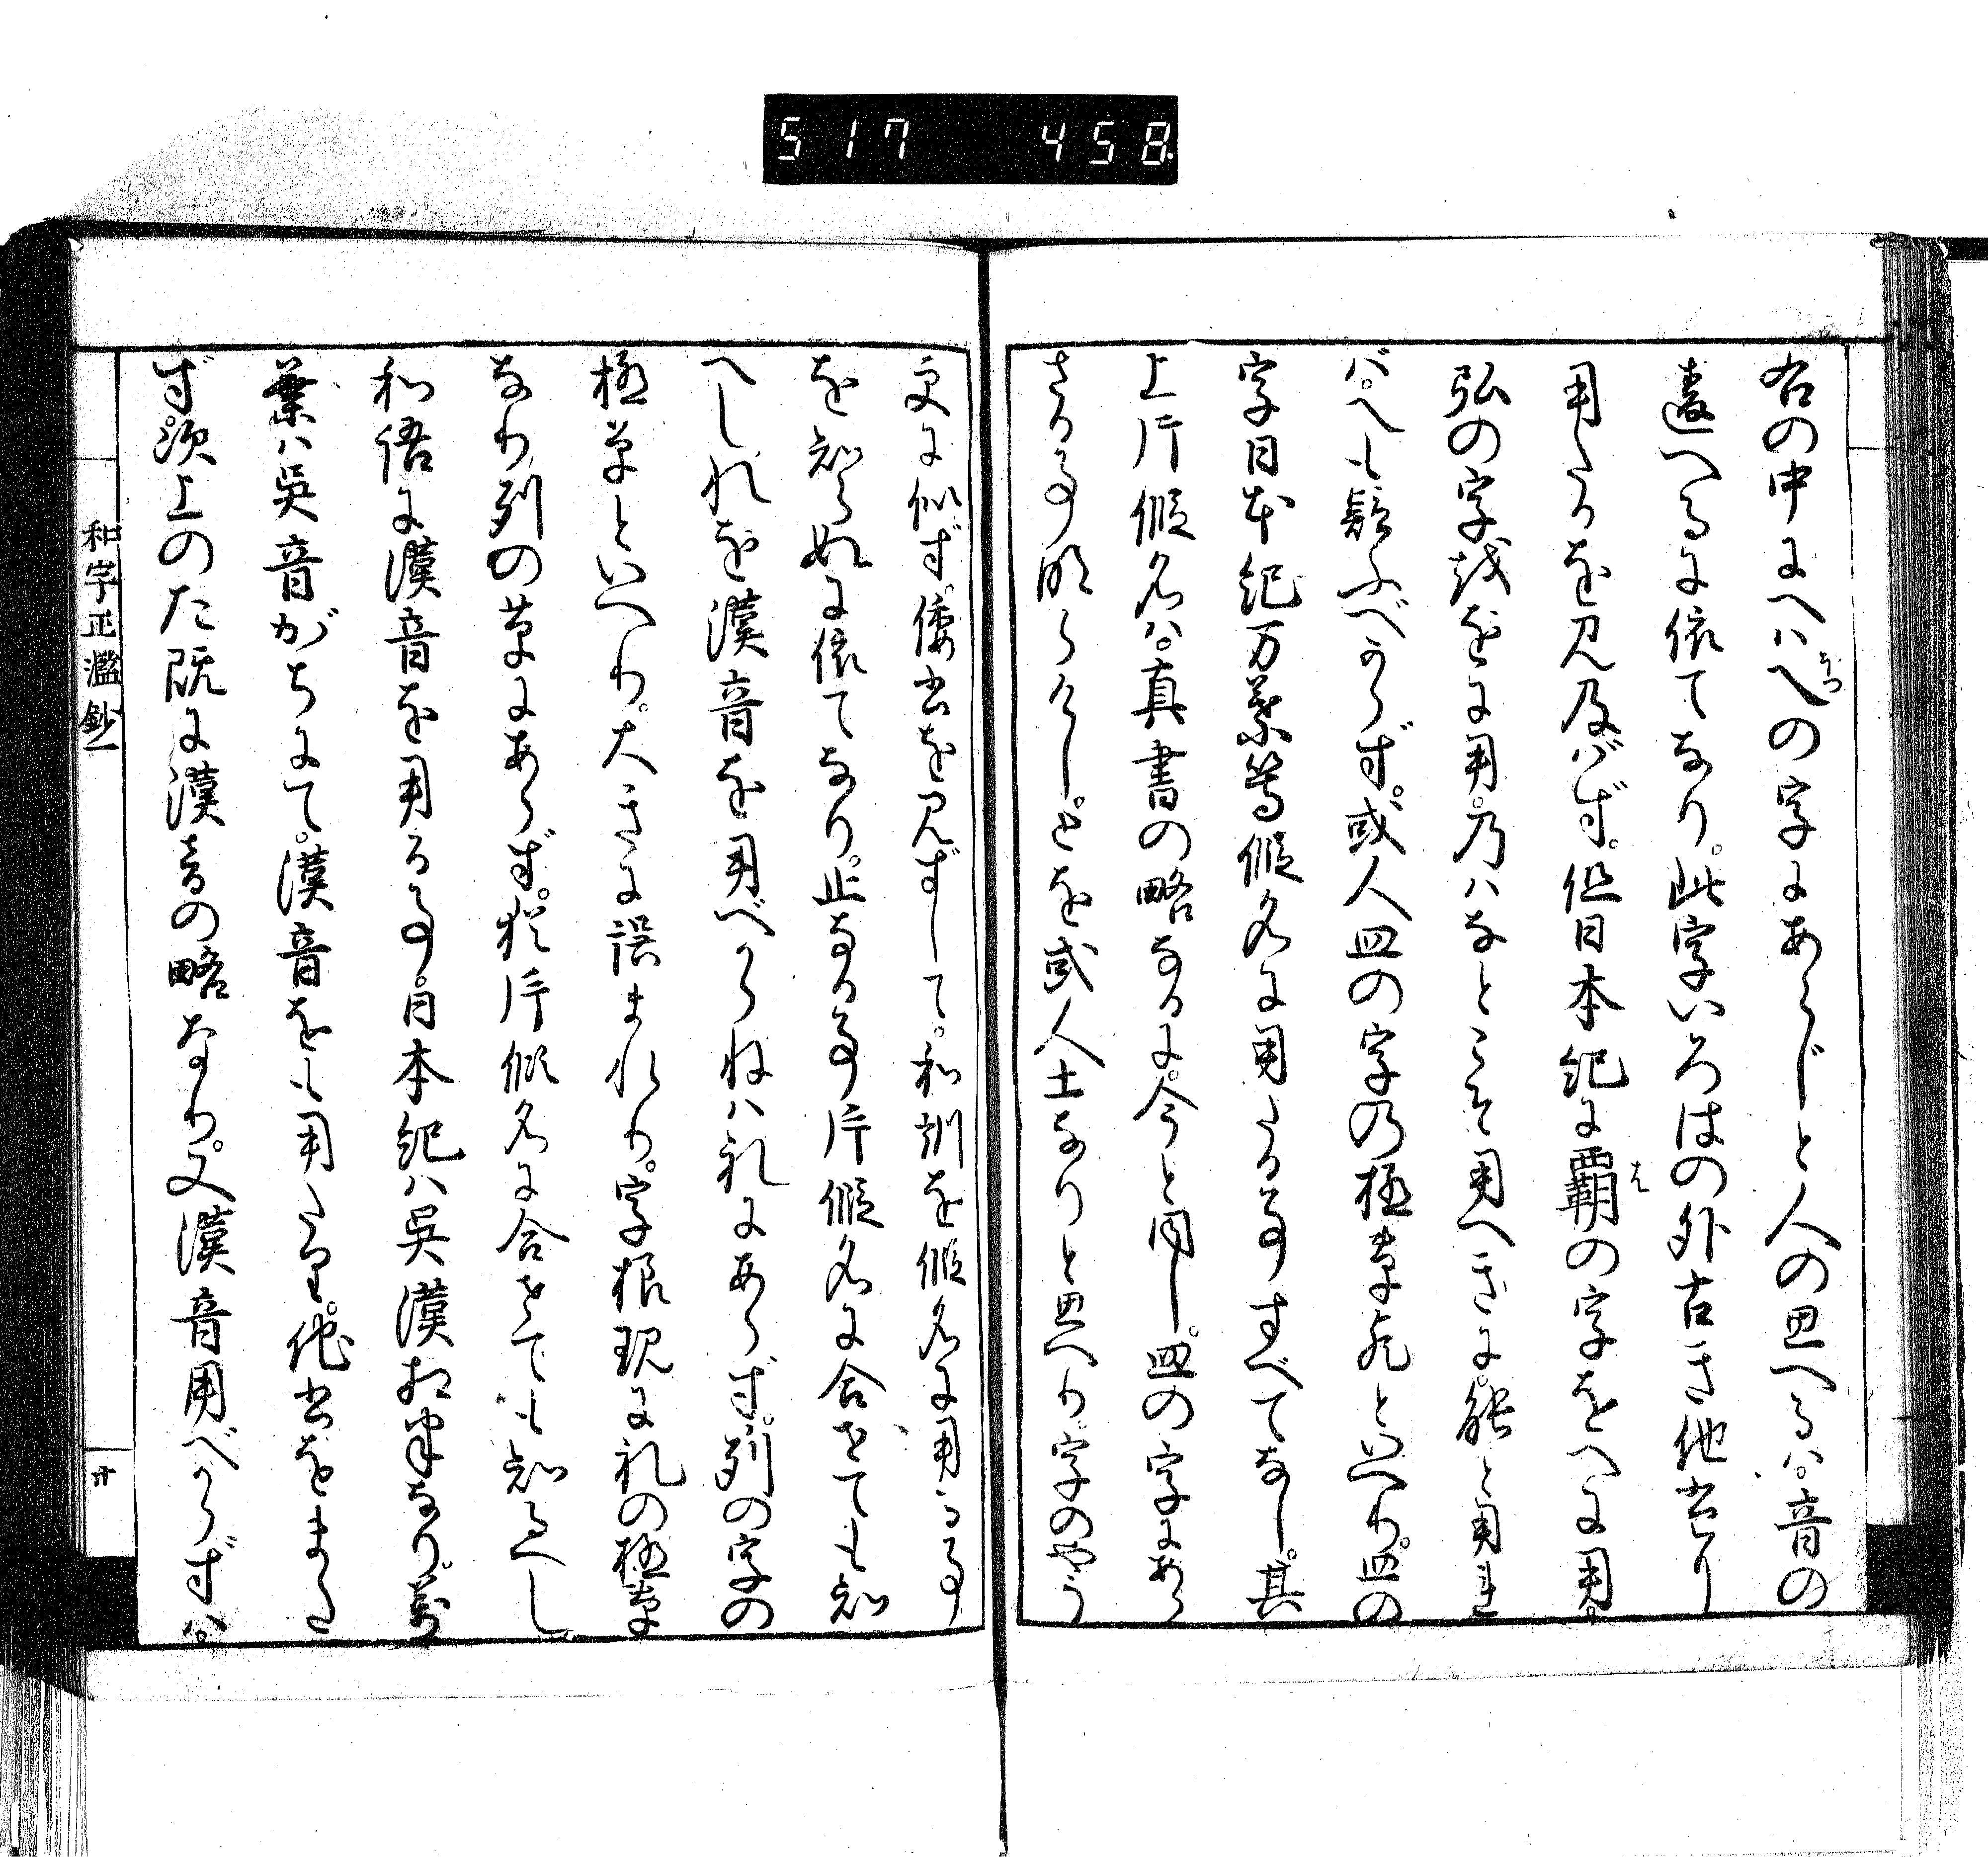 517 458
右の中にへハ乀の字にあらじと人の思へるハ。音の
違へるに依てなり。此字いろはの外古き他書に
用たるを見及バず。但日本紀に覇の字をへに用。
弘の字越をに用。乃ハなとこそ用へきに。能と用れ
バ。へも疑ふべからず。或人皿の字乃極草
といへり。皿の
字日本紀万葉等假名に用たる事すべてなし。其
上片假名ハ。真書の略なるに。今と同し。皿の字にあら
さる事明らけし。とを或人土なりと思へり。字のやう
更に似ず。倭書を見ずして。和訓を假名に用る事
を知らぬに依てなり。止なる事片假名に合せても知
へしれを漢音を用べからねハ礼にあらず。列の字の
極草といへり。大きに誤まれり。字根現に礼の極草
なり列の草にあらず。猶片假名に合せても知るへし
和語に漢音を用る事。日本紀ハ呉漢相半なり。萬
葉ハ呉音がちにて。漢音をも用たり。他書をまた
ず。須上のた既に漢音の略なり。又漢音用べからずハ。
和字正濫鈔一
廿